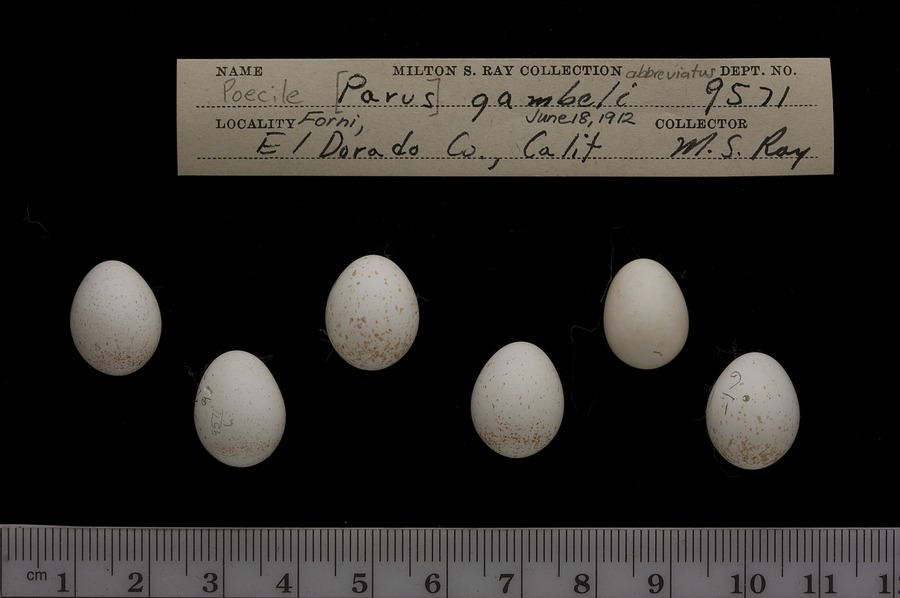 NAME MILTON S. RAY COLLECTION abbreviatus DEPT. NO.
Poecile [Parus] gambeli 9571
LOCALITY Forni, June 18, 1912 COLLECTOR
El Dorado Co., Calif M. S. Ray
cm 1 2 3 4 5 6 7 8 9 10 11